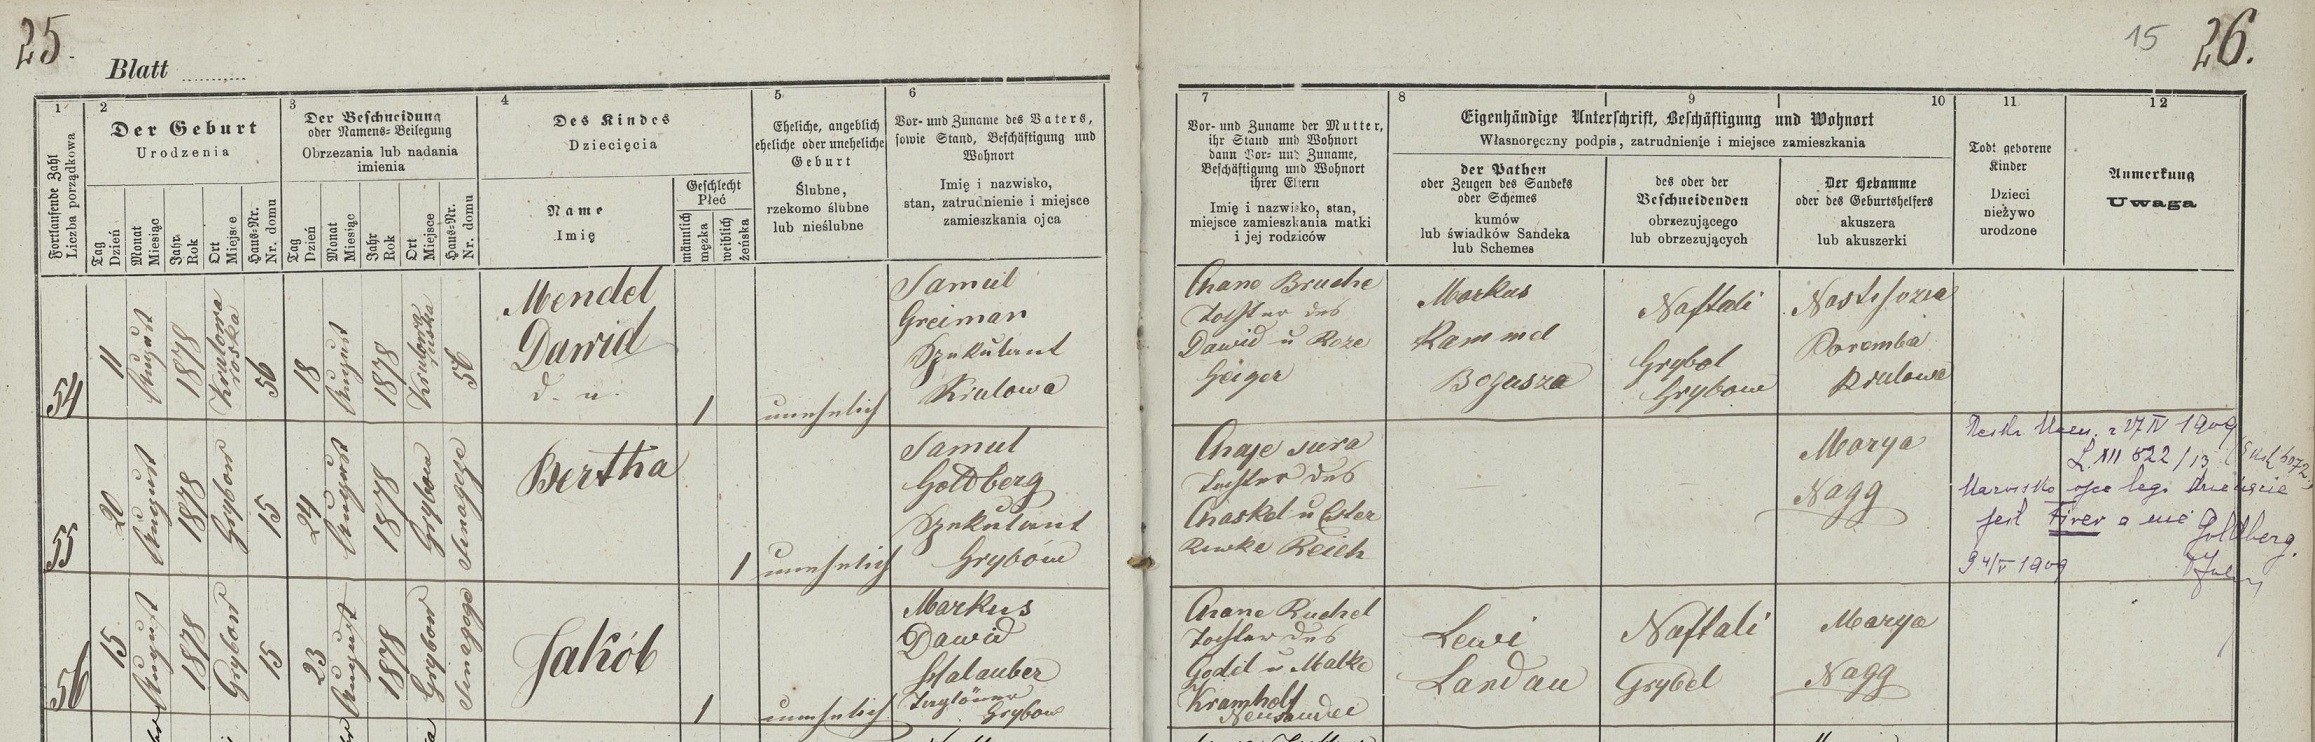 25.
Blatt
15
26.
1
Fortlaufende Zahl
Liczba porządkowa
2
Der Geburt
Urodzenia
Tag
Dzień
Monat
Miesiąc
Jahr
Rok
Ort
Miejsce
Haus-Nr.
Nr. domu
3
Der Beschneidung
oder Namens-Beilegung
Obrzezania lub nadania
imienia
Tag
Dzień
Monat
Miesiąc
Jahr
Rok
Ort
Miejsce
Haus-Nr.
Nr. domu
4
Des Kindes
Dziecięcia
Name
Imię
Geschlecht
Płeć
männlich
męzka
weiblich
żeńska
5
Eheliche, angeblich
eheliche oder uneheliche
Geburt
Ślubne,
rzekomo ślubne
lub nieślubne
6
Vor- und Zuname des Vaters,
sowie Stand, Beschäftigung und
Wohnort
Imię i nazwisko,
stan, zatrudnienie i miejsce
zamieszkania ojca
7
Vor- und Zuname der Mutter,
ihr Stand und Wohnort
dann Vor- und Zuname,
Beschäftigung und Wohnort
ihrer Eltern
Imię i nazwisko, stan,
miejsce zamieszkania matki
i jej rodziców
8
9
10
Eigenhändige Unterschrift, Beschäftigung und Wohnort
Własnoręczny podpis, zatrudnienie i miejsce zamieszkania
der Pathen
oder Zeugen des Sandeks
oder Schemes
kumów
lub świadków Sandeka
lub Schemes
des oder der
Beschneidenden
obrzezującego
lub obrzezujących
Der Hebamme
oder des Geburtshelfers
akuszera
lub akuszerki
11
Todt geborene
Kinder
Dzieci
nieżywo
urodzone
12
Anmerkung
Uwaga
54
11
August
1878
Krulowa
roska
56
18
August
1878
Krulowa
ruska
56
Mendel
Dawid
d. u.
1
unehelich
Samuel
Greiman
Spekulant
Krulowa
Chane Bruche
Tochter des
Dawid u Roze
Geiger
Markus
Rammel
Bogusza
Naftali
Grybel
Grybow
Nastsozia
Poremba
Krulowa
55
20
August
1878
Grybow
15
24
August
1878
Grybow
Senagoge
Bertha
1
unehelich
Samul
Goldberg
Spekulant
Grybów
Chaje sura
Tochter des
Chaskel u Ester
Rewke Reich
Marya
Nagg
27 IV 1909
L. XII 822/13
Nazwisko ojca tego dziecięcia
jest Firer a nie Goldberg.
1909
56
15
August
1878
Grybow
15
23
August
1878
Grybow
Senagoge
Jakób
1
unehelich
Markus
Dawid
Halauber
Grybow
Chane Ruchel
Tochter des
Godel u Malke
Kramholf
Neusandec
Lewi
Landau
Naftali
Grybel
Marya
Nagg